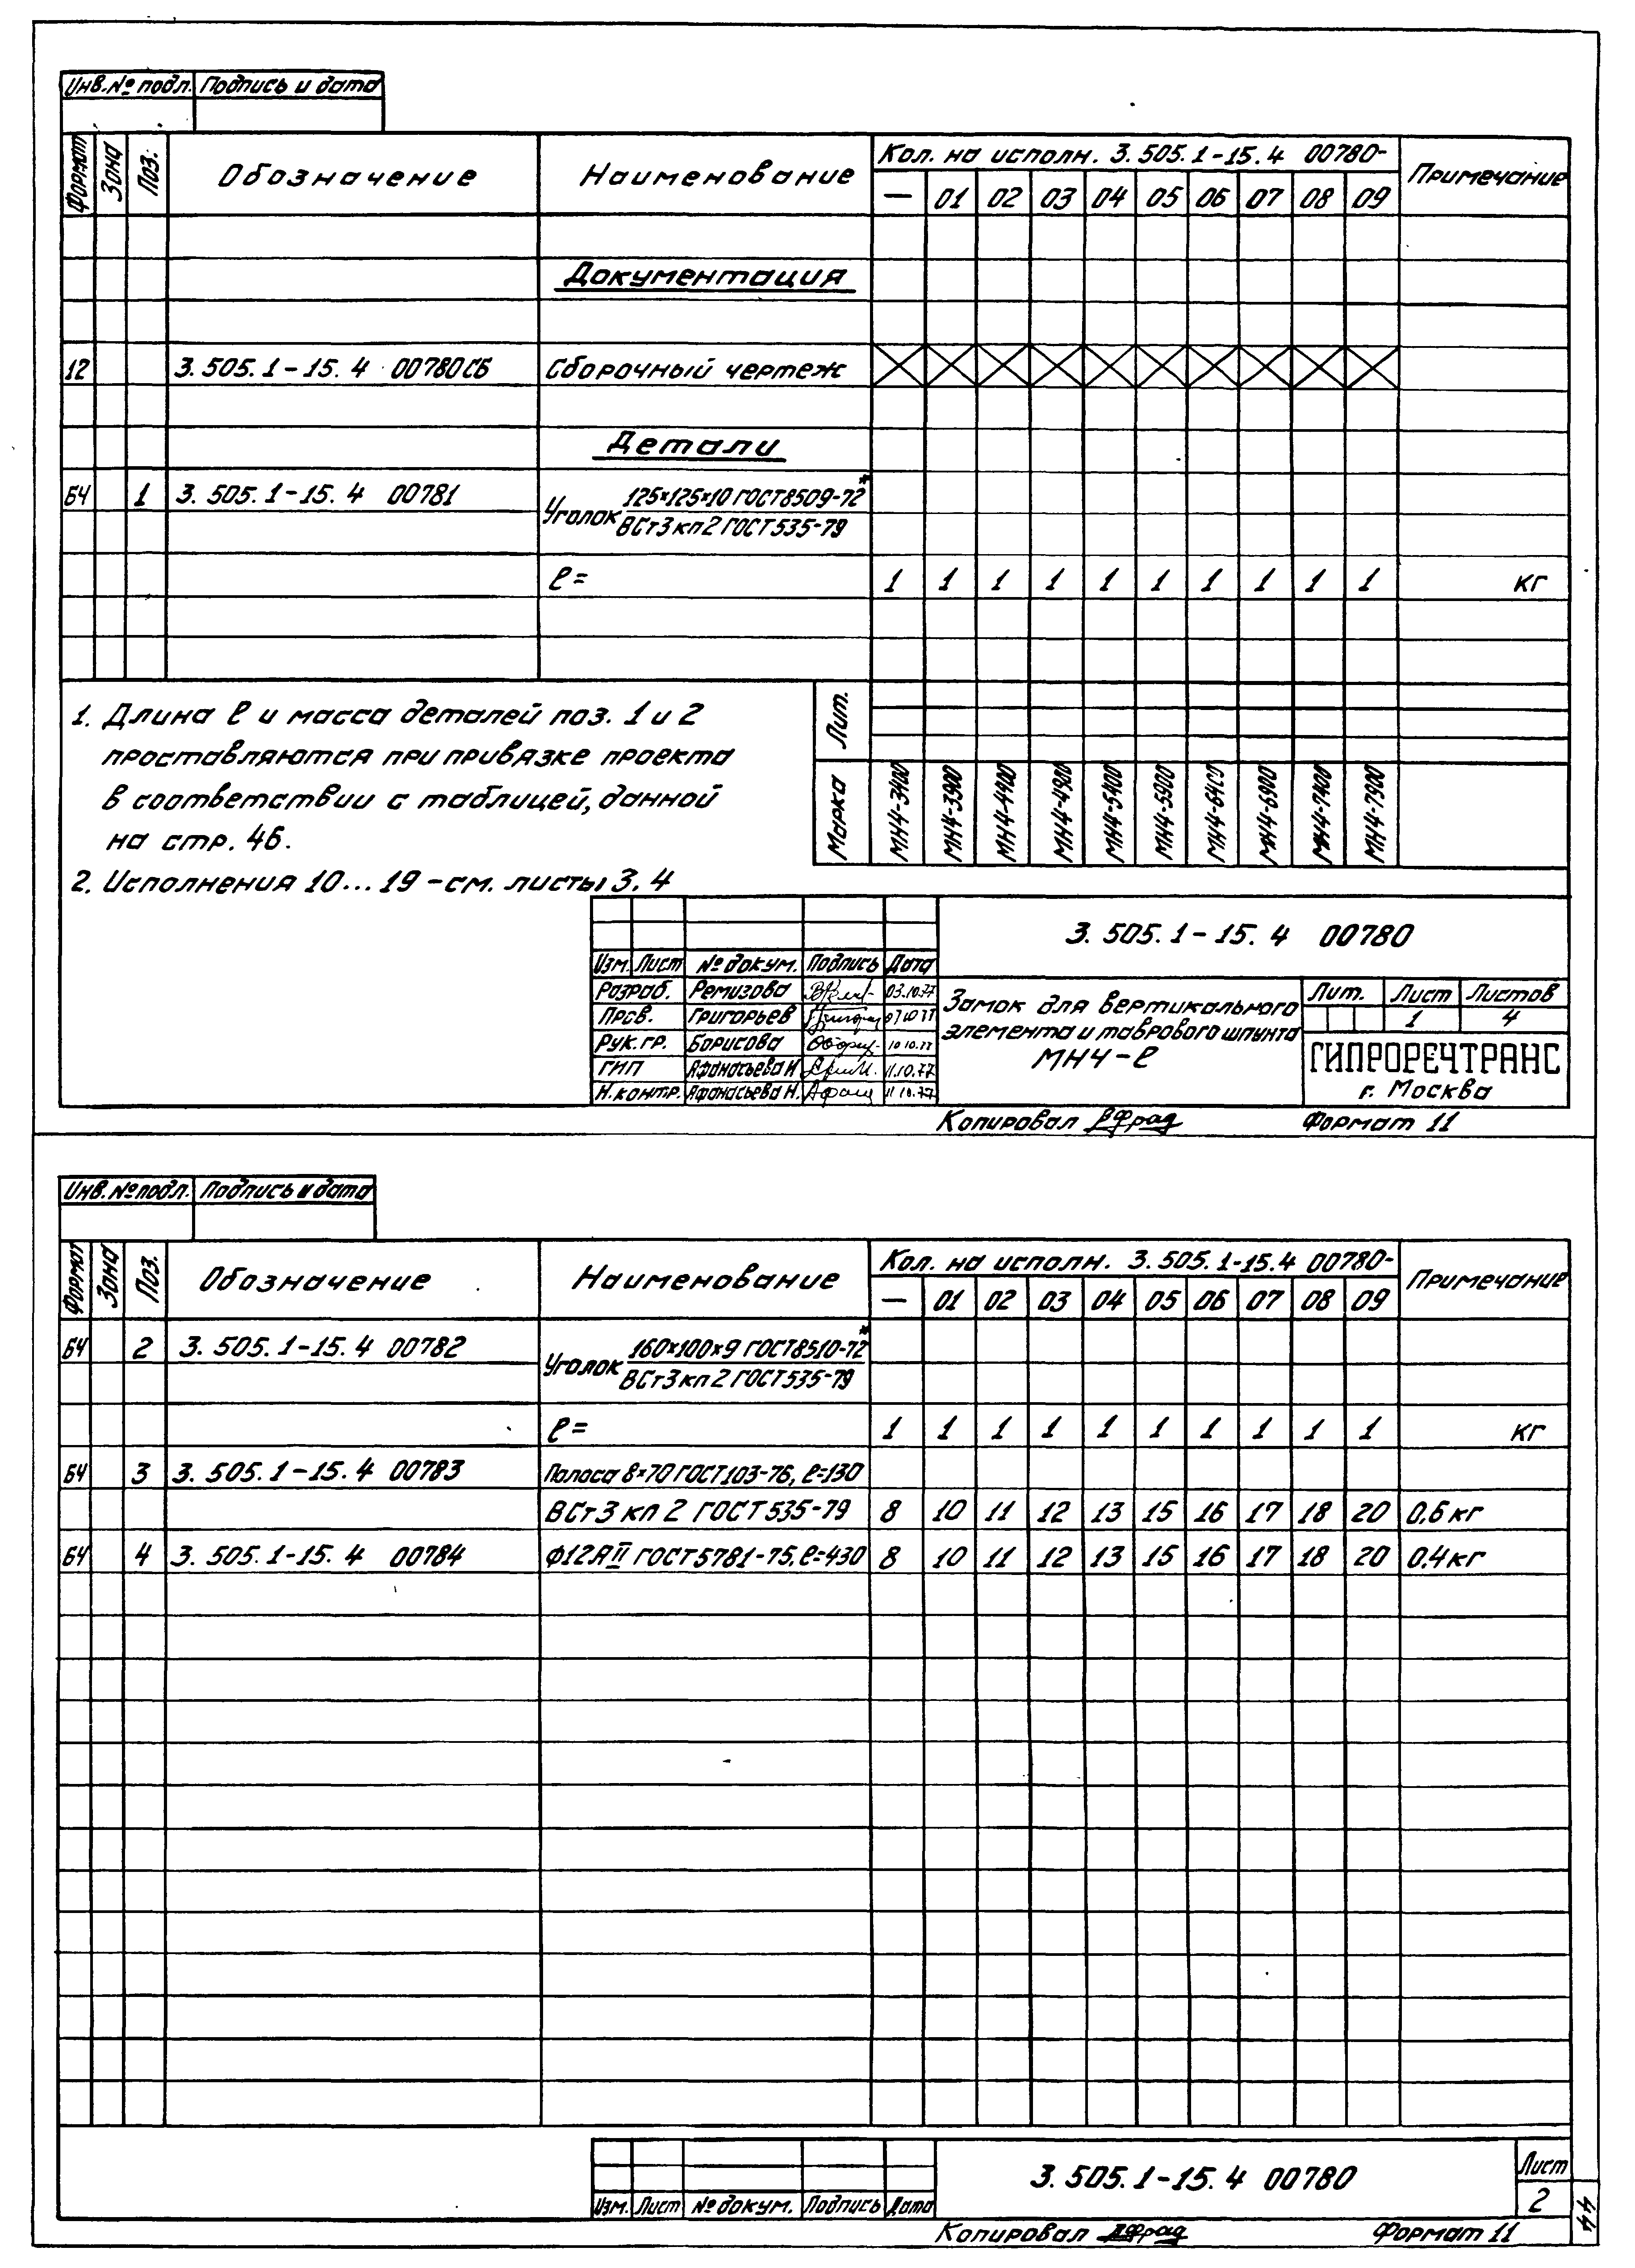 Инв. № подл. Подпись и дата
Формат Зона Поз. Обозначение Наименование Кол. на исполн. 3.505.1-15.4 00780- Примечание
— 01 02 03 04 05 06 07 08 09
Документация
12 3.505.1-15.4 00780СБ Сборочный чертеж
Детали
БЧ 1 3.505.1-15.4 00781 Уголок 125×125×10 ГОСТ 8509-72*
ВСт3кп2 ГОСТ 535-79
ℓ= 1 1 1 1 1 1 1 1 1 1 кг
1. Длина ℓ и масса деталей поз. 1 и 2
проставляются при привязке проекта
в соответствии с таблицей, данной
на стр. 46.
2. Исполнения 10...19 - см. листы 3, 4
Лит.
Марка МН4-3400 МН4-3900 МН4-4400 МН4-4900 МН4-5400 МН4-5900 МН4-6400 МН4-6900 МН4-7400 МН4-7900
3.505.1-15.4 00780
Изм. Лист № докум. Подпись Дата
Разраб. Ремизова 03.10.77
Пров. Григорьев 07.10.77
Рук. гр. Борисова 10.10.77
ГИП Афанасьева Н. 11.10.77
Н. контр. Афанасьева Н. 11.10.77
Замок для вертикального
элемента и таврового шпунта
МН4-ℓ
Лит. Лист Листов
1 4
ГИПРОРЕЧТРАНС
г. Москва
Копировал Формат 11
Инв. № подл. Подпись и дата
Формат Зона Поз. Обозначение Наименование Кол. на исполн. 3.505.1-15.4 00780- Примечание
— 01 02 03 04 05 06 07 08 09
БЧ 2 3.505.1-15.4 00782 Уголок 160×100×9 ГОСТ 8510-72*
ВСт3кп2 ГОСТ 535-79
ℓ= 1 1 1 1 1 1 1 1 1 1 кг
БЧ 3 3.505.1-15.4 00783 Полоса 8×70 ГОСТ 103-76, ℓ=130
ВСт3кп2 ГОСТ 535-79 8 10 11 12 13 15 16 17 18 20 0,6 кг
БЧ 4 3.505.1-15.4 00784 Ф12АII ГОСТ 5781-75, ℓ=430 8 10 11 12 13 15 16 17 18 20 0,4 кг
3.505.1-15.4 00780
Лист
2
Изм. Лист № докум. Подпись Дата
Копировал Формат 11
44